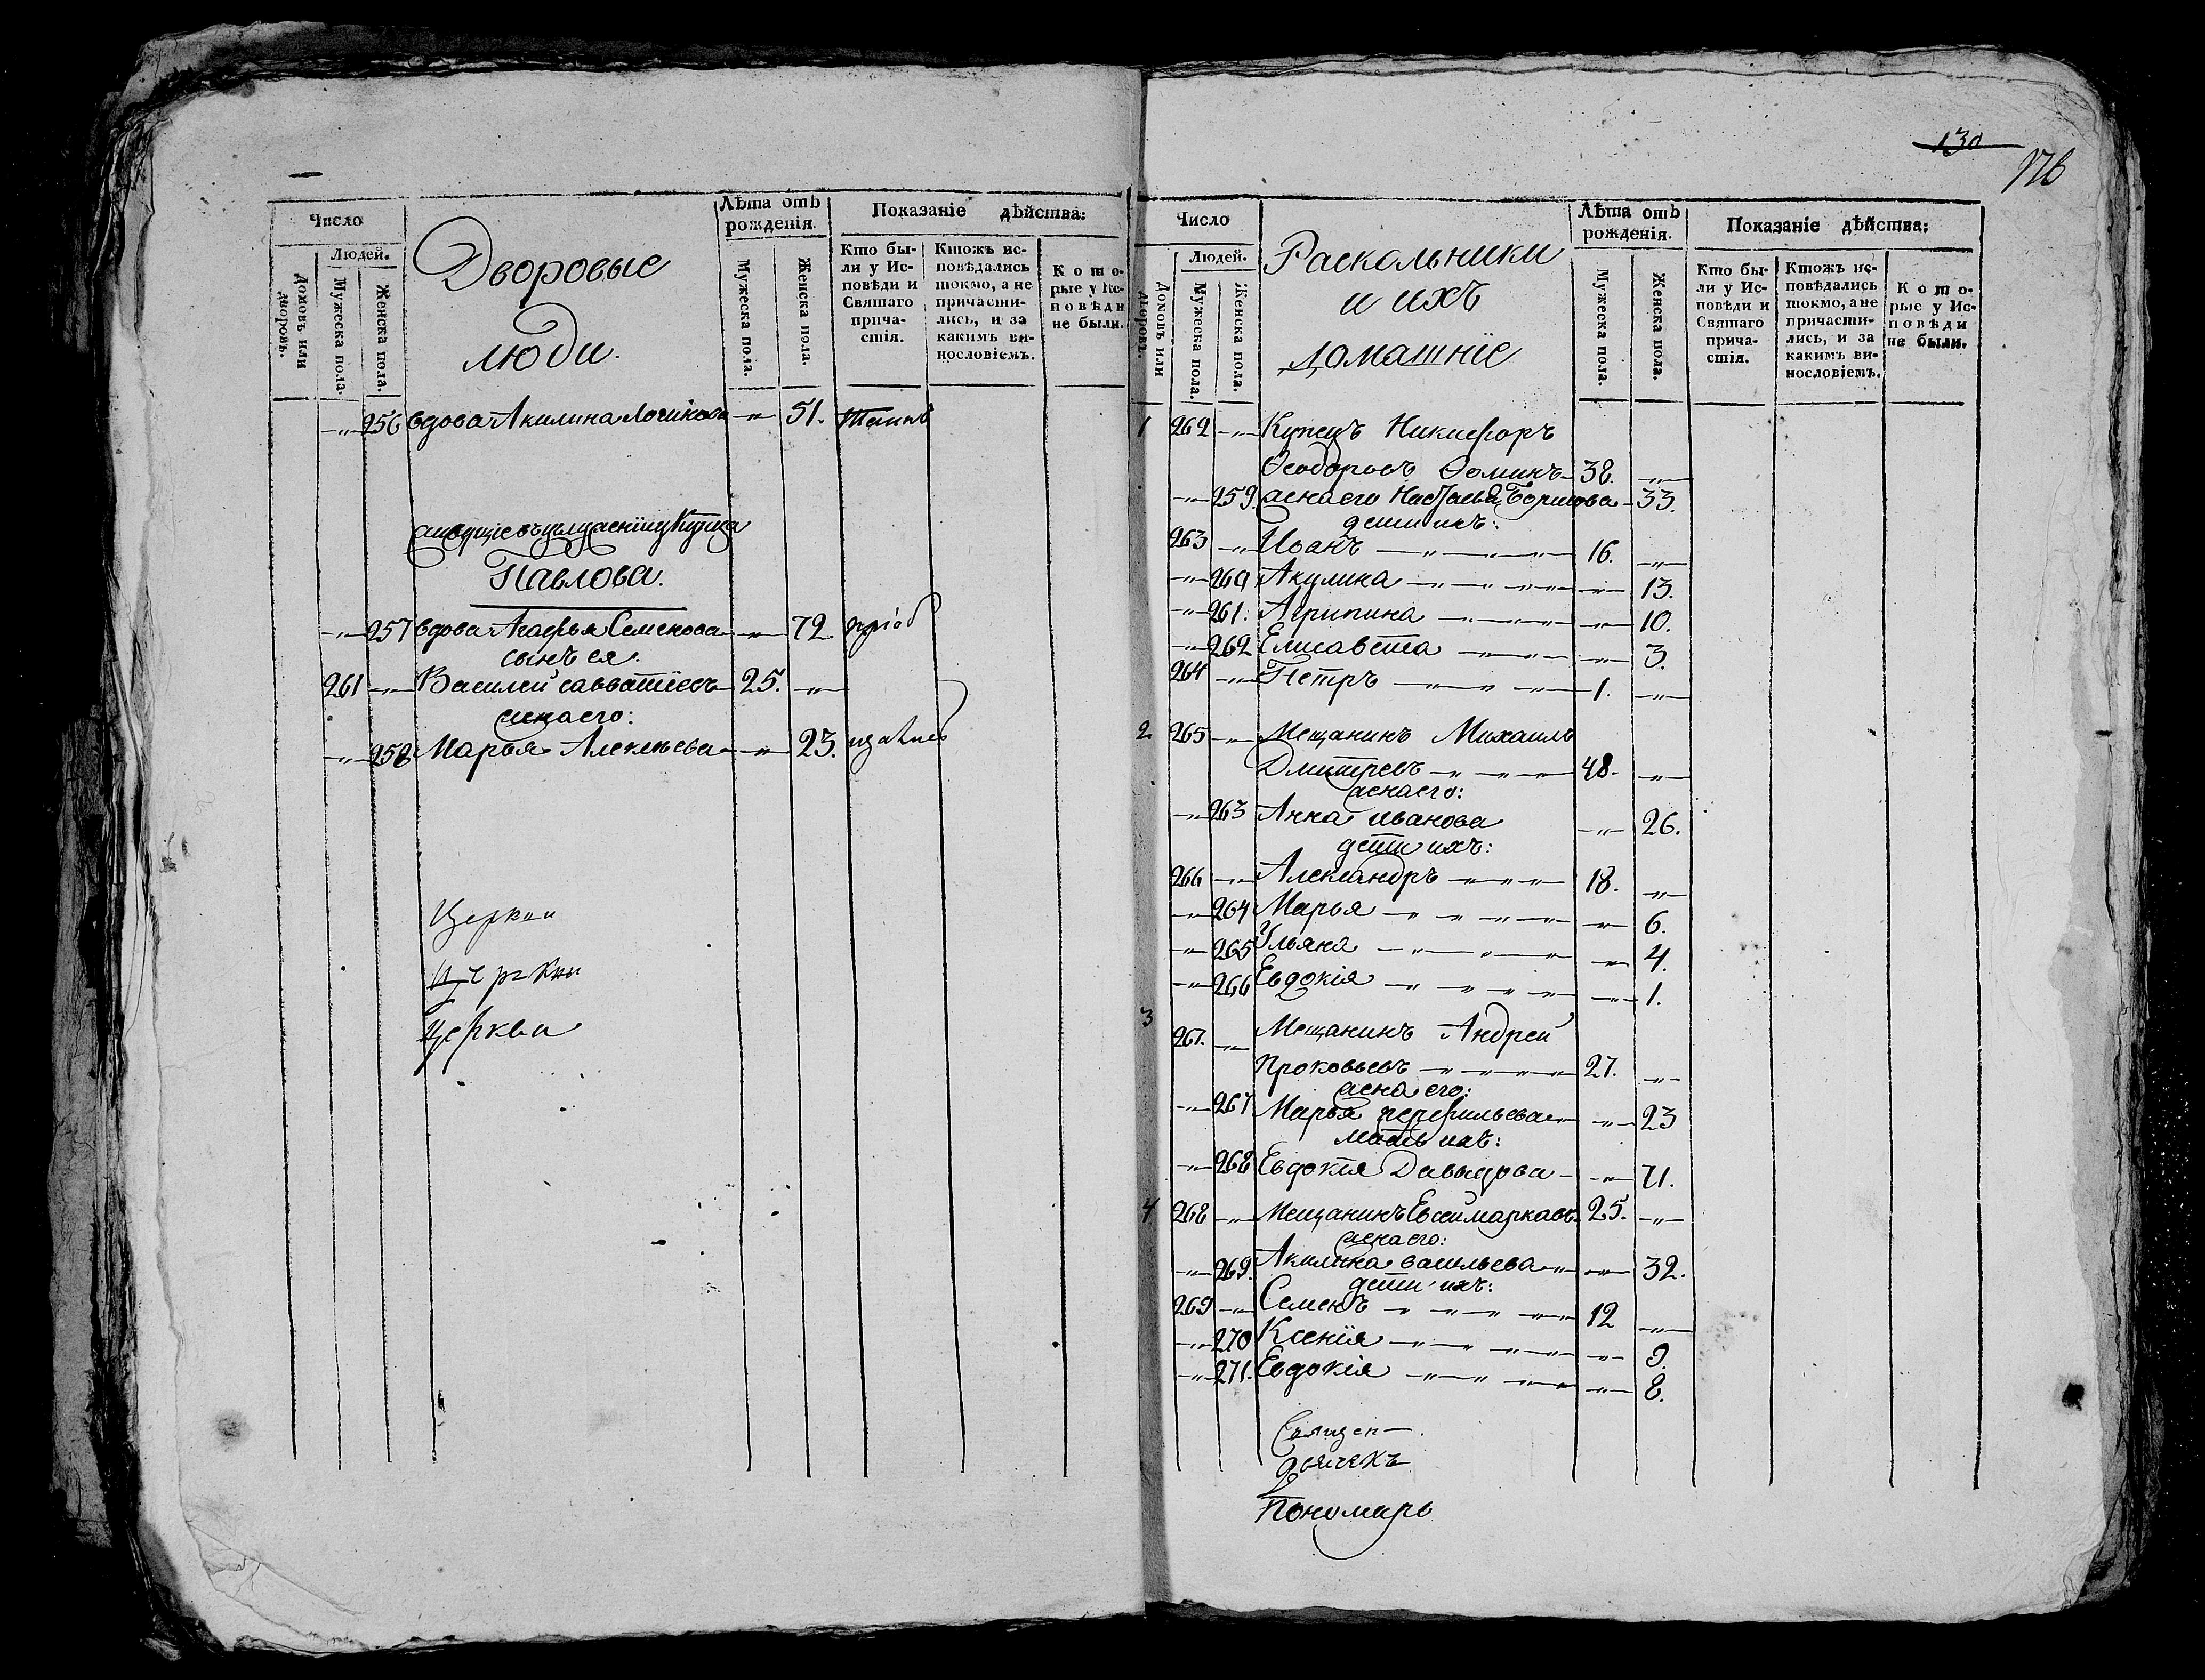 130
176
Число
Людей.
Домовъ или дворовъ.
Мужеска пола.
Женска пола.
Дворовые
люди.
Лѣта отъ рожденія.
Мужеска пола.
Женска пола.
Показаніе дѣйства:
Кто бы-
ли у Ис-
повѣди и
Святаго
прича-
стія.
Ктожъ ис-
повѣдались
токмо, а не
причасти-
лись, и за
какимъ ви-
нословіемъ.
Кото-
рые у Ис-
повѣди
не были.
-"- 256 вдова Акилина -"- 51.
Павлова.
-"- 257 вдова Агафья Семенова -"- 72.
сынъ ея.
261 -"- Василей савватѣевъ 25. -"-
жена его:
-"- 258 Марья Алексѣева -"- 23.
Церкви
Церкви
Церкви
Число
Людей.
Домовъ или дворовъ.
Мужеска пола.
Женска пола.
Раскольники
и ихъ
домашніе
Лѣта отъ рожденія.
Мужеска пола.
Женска пола.
Показаніе дѣйства:
Кто бы-
ли у Ис-
повѣди и
Святаго
прича-
стія.
Ктожъ ис-
повѣдались
токмо, а не
причасти-
лись, и за
какимъ ви-
нословіемъ.
Кото-
рые у Ис-
повѣди
не были.
1 262 -"- Купецъ Никифоръ
Ѳеодоровъ Ѳоминъ 38. -"-
-"- 259. жена его Настасья Борисова 33.
дети ихъ:
263 -"- Иоанъ 16. -"-
-"- 260 Акулина -"- 13.
-"- 261. Агрипина -"- 10.
-"- 262 Елисавета -"- 3.
264 -"- Петръ 1. -"-
2 265 -"- Мещанинъ Михаилъ
Дмитревъ 48. -"-
жена его:
-"- 263 Анна иванова -"- 26.
дети ихъ:
266 -"- Александръ 18. -"-
-"- 264 Марья -"- 6.
-"- 265 Ульяна -"- 4.
-"- 266 Евдокія -"- 1.
3 267. -"- Мещанинъ Андрей
Прокофьевъ 27. -"-
жена его:
-"- 267 Марья перфильева -"- 23
мать ихъ:
-"- 268 Евдокія Давыдова -"- 71.
4 268 -"- Мещанинъ Евсей маркавъ 25. -"-
жена его:
-"- 269. Акилина васильева -"- 32.
дети ихъ:
269 -"- Семенъ 12 -"-
-"- 270 Ксенія -"- 9.
-"- 271. Евдокія -"- 8.
Священ-
дьячекъ
Пономарь